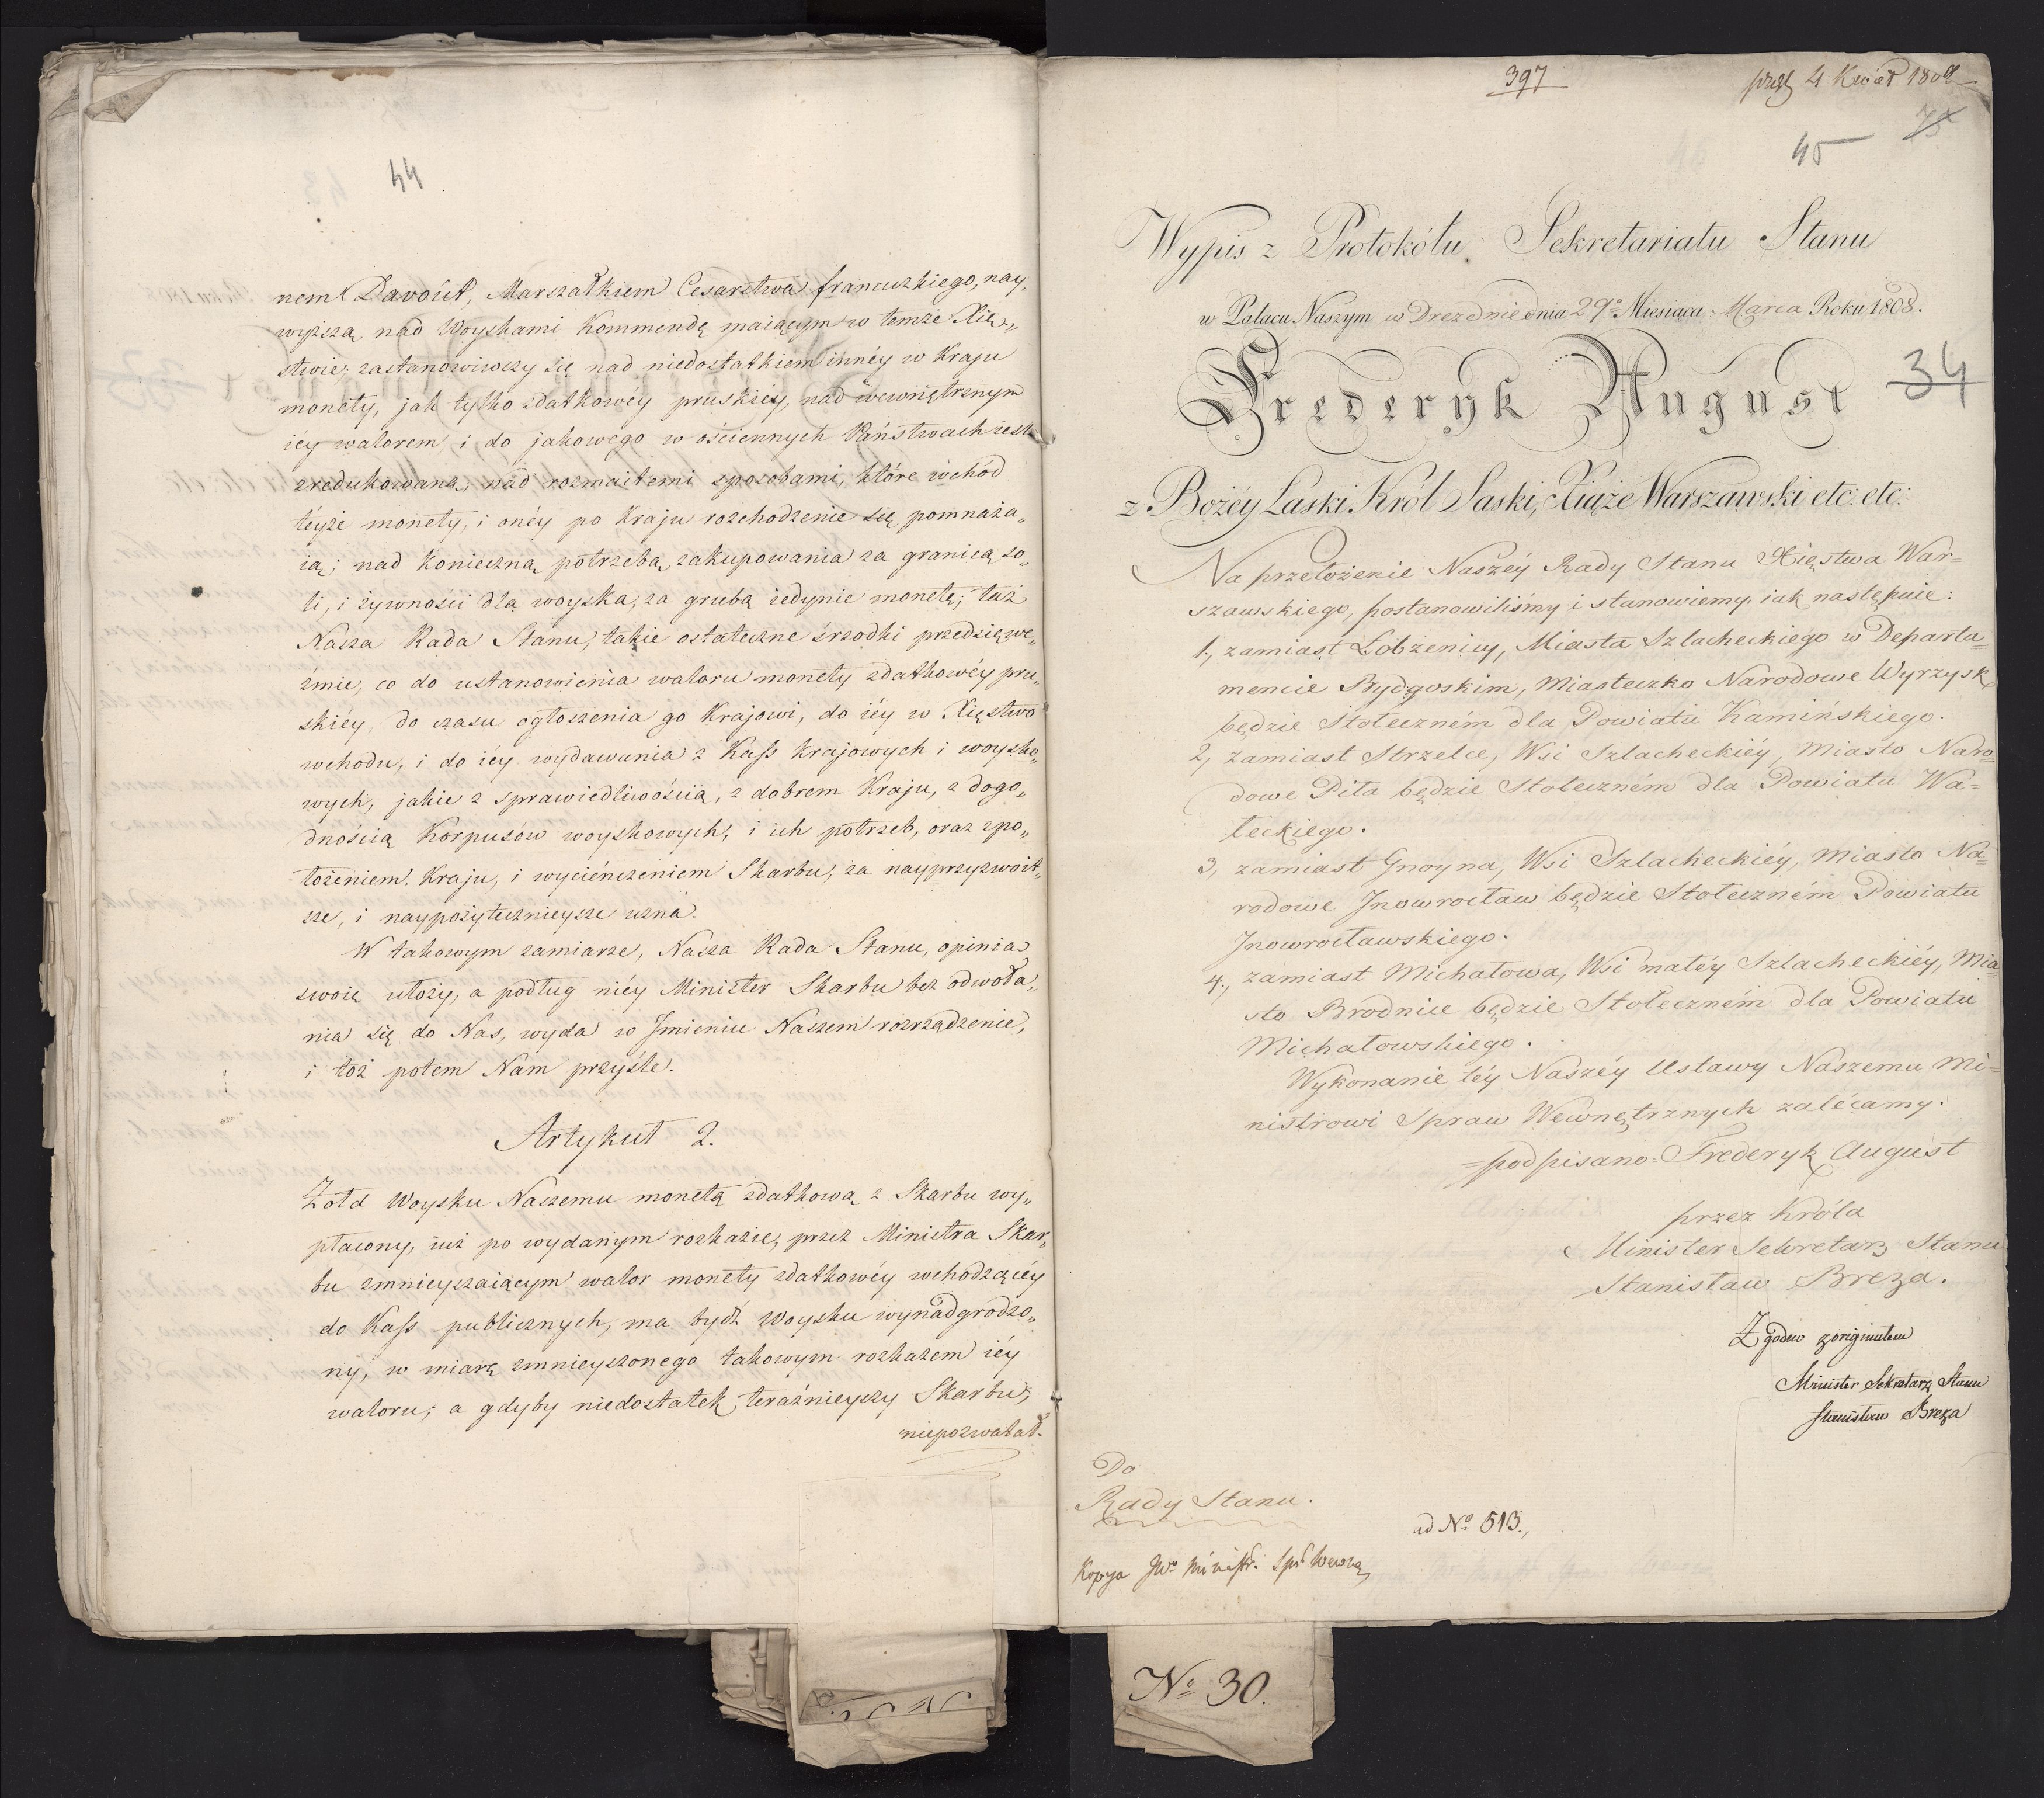 44
nem Davoút, Marszałkiem Cesarstwa francuzkiego, nay„
wyższą nad Woyskami Kommendę maiącym w temże Xię„
stwie; zastanowiwszy się nad niedostatkiem innéy w Kraju
monety, jak tylko zdatkowéy pruskiéy, nad wewnętrznym
iéy walorem, i do jakowego w ościennych Państwach iest
zredukowana; nad rozmaitemi sposobami, które wchód
téyże monety, i onéy po Kraju rozchodzenie się pomnaża„
ią; nad konieczną potrzebą zakupowania za granicą so„
li, i żywności dla woyska, za grubą iedynie monetę; taż
Nasza Rada Stanu, takie ostateczne śrzodki przedsięwe„
źmie, co do ustanowienia waloru monety zdatkowéy pru„
skiéy, do czasu ogłoszenia go Krajowi, do iéy w Xięstwo
wchodu, i do iéy wydawania z Kass krajowych i woysko„
wych, jakie z sprawiedliwością, z dobrem Kraju, z dogo„
dnością Korpusów woyskowych, i ich potrzeb, oraz z po„
łożeniem Kraju, i wycieńczeniem Skarbu, za nayprzyzwoit„
sze, i naypożytecznieysze uzna.
W takowym zamiarze, Nasza Rada Stanu, opinią
swoię ułoży, a podług niéy Minister Skarbu bez odwoła„
nia się do Nas, wyda w Jmieniu Naszem rozrządzenie,
i toż potem Nam przyśle.
Artykuł 2.
Żołd Woysku Naszemu monetą zdatkową z Skarbu wy„
płacony, iuż po wydanym rozkazie, przez Ministra Skar„
bu zmnieyszaiącym walor monety zdatkowéy wchodzącéy
do Kass publicznych, ma bydź Woysku wynadgrodzo„
ny, w miarę zmnieyszonego takowym rozkazem iéy
waloru; a gdyby niedostatek teraźnieyszy Skarbu,
niepozwalał
397
4 Kwiet 1808
45
Wypis z Protokółu Sekretariatu Stanu
w Pałacu Naszym w Dreznie dnia 29º Miesiąca Marca Roku 1808.
Frederyk August
34
z Bożéy Łaski Król Saski, Xiąże Warszawski etc: etc:
Na przełożenie Naszéy Rady Stanu Xięstwa War=
szawskiego, postanowiliśmy i stanowiemy iak następuie:
1, zamiast Łobżenicy, Miasta Szlacheckiego w Departa=
mencie Bydgoskim, Miasteczko Narodowe Wyrzysk
będzie Stołeczném dla Powiatu Kamińskiego.
2, zamiast Strzelce, Wsi Szlacheckiéy, Miasto Naro=
dowe Piła będzie Stołeczném dla Powiatu Wa=
łeckiego.
3, zamiast Gnoyna, Wsi Szlacheckiéy, Miasto Na=
rodowe Jnowrocław będzie Stołeczném Powiatu
Jnowrocławskiego.
4, zamiast Michałowa, Wsi małéy Szlacheckiéy, Mia=
sto Brodnice będzie Stołeczném dla Powiatu
Michałowskiego.
Wykonanie téy Naszéy Ustawy Naszemu Mi=
nistrowi Spraw Wewnętrznych zalécamy.
=podpisano= Frederyk August
przez Króla
Minister Sekretarz Stanu
Stanisław Breza.
Zgodno z originałem
Minister Sekretarz Stanu
Stanisław Breza
Do
Rady Stanu.
ad Nº 513.
Kopya JWº Ministr. Spr Wewnę
Nº 30.